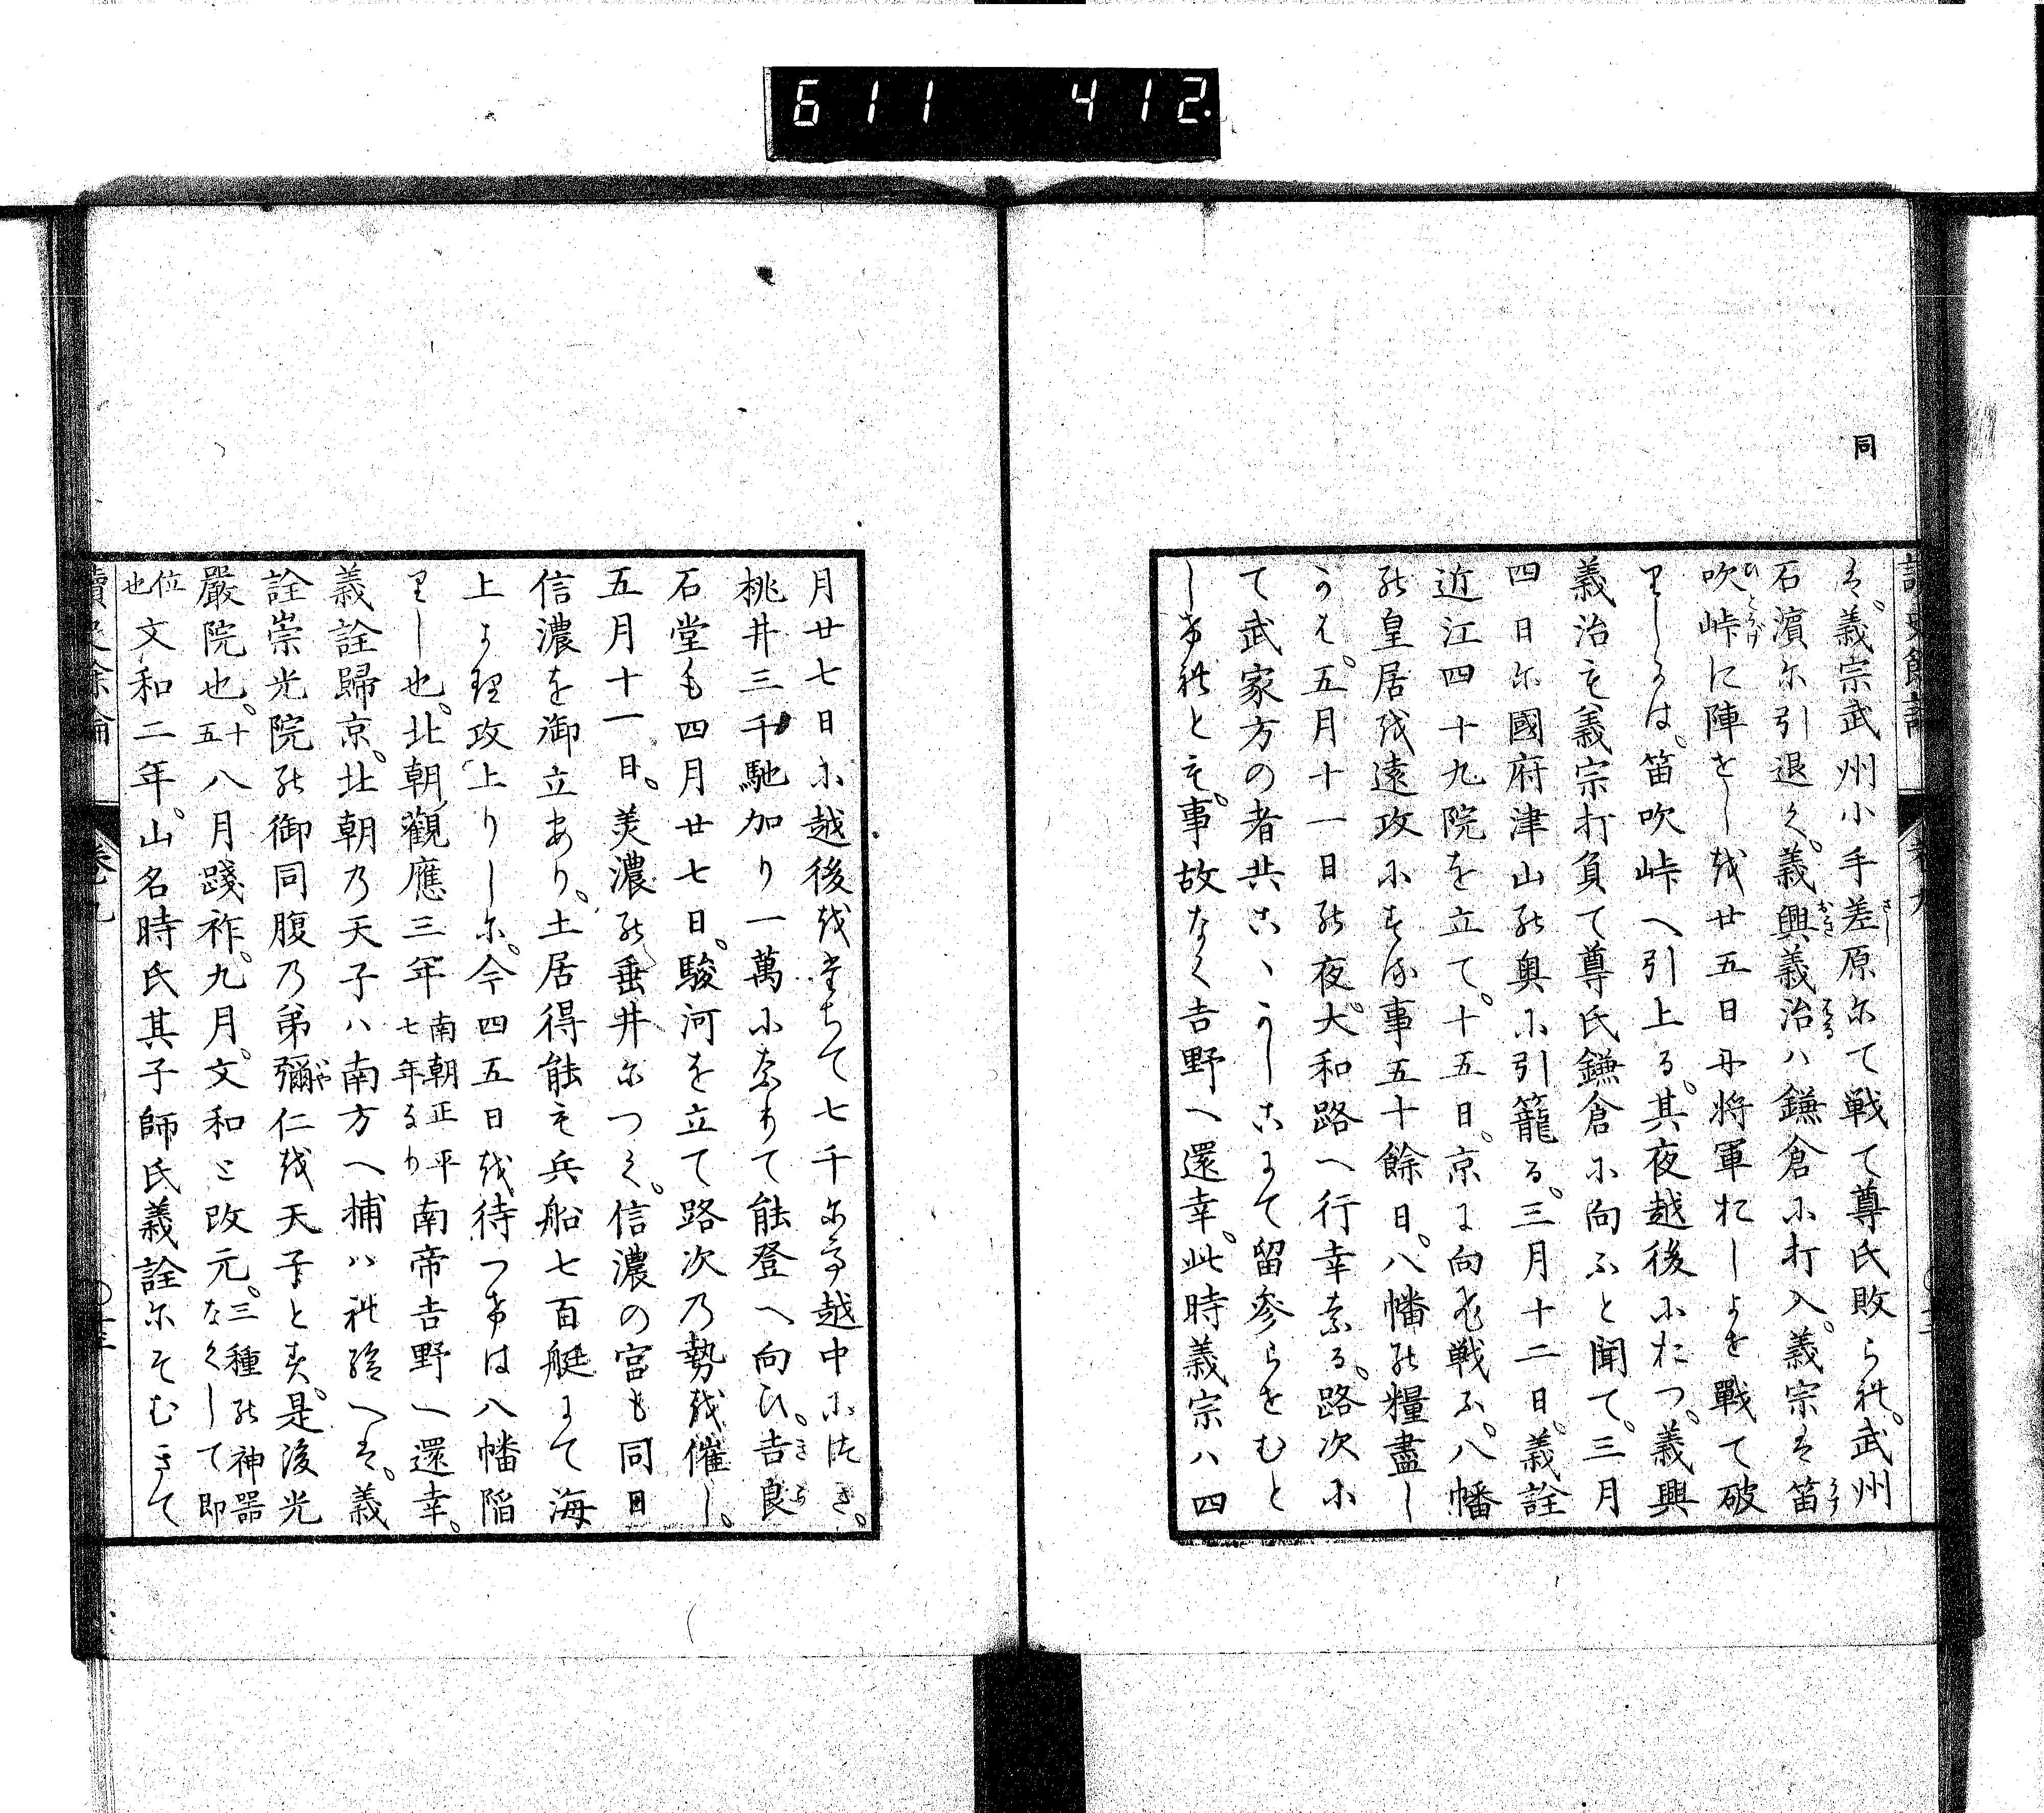 611 412
同
讀史餘論 卷九
は。義宗武州小手差原にて戦て尊氏敗られ。武州
石濱に引退く。義興義治ハ鎌倉に打入。義宗は笛
吹峠に陣をしを廿五日に将軍おしよせ戰て破
りしかは。笛吹峠へ引上る。其夜越後におつ。義興
義治も義宗打負て尊氏鎌倉に向ふと聞て。三月
四日に國府津山の奥に引籠る。三月十二日。義詮
近江四十九院を立て。十五日。京に向ひ戦ふ。八幡
の皇居を遠攻にする事五十餘日。八幡の糧盡し
かは。五月十一日の夜。大和路へ行幸なる。路次に
て武家方の者共こゝかしこにて留参らせむと
しけれとも。事故なく吉野へ還幸。此時義宗ハ四
月廿七日に越後をたちて七千にて越中につき。
桃井三千馳加り一萬になりて能登へ向ひ。吉良
石堂も四月廿七日。駿河を立て路次の勢を催し。
五月十一日。美濃の垂井につく。信濃の宮も同日
信濃を御立あり。土居得能も兵船七百艇にて海
上より攻上りしに。今四五日を待つけは八幡陥
りし也。北朝觀應三年南朝正平七年なり南帝吉野へ還幸。
義詮歸京。北朝の天子ハ南方へ捕ハれ給へは。義
詮崇光院の御同腹の弟彌仁を天子とす。是後光
嚴院也。十五八月踐祚。九月。文和と改元。三種の神器なくして即
位也文和二年。山名時氏其子師氏義詮にそむきて
讀史餘論 卷九